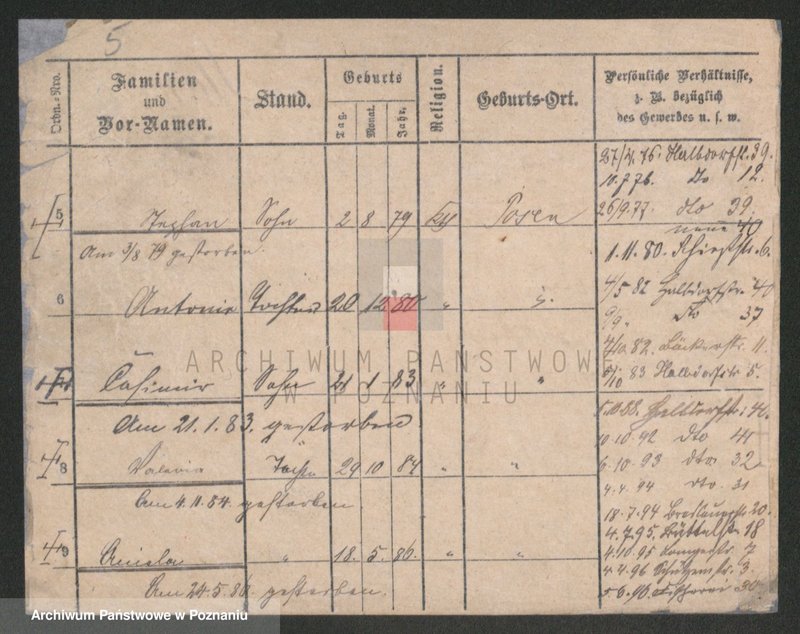 5
Ordn.-Nro.
Familien
und
Vor-Namen.
Stand.
Geburts
Tag.
Monat.
Jahr.
Religion.
Geburts-Ort.
Persönliche Verhältnisse,
z. B. bezüglich
des Gewerbes u. s. w.
27/4.76. Halbdorfstr. 39.
10.7.76. do 12.
26/9.77. dto 39.
neue 40
5 Stephan Sohn 2 8 79 Posen
Am 3/8 79 gestorben.
1.11.80. 6.
6 Antonie Tochter 20 12 80 "
4/5 82 Halbdorfstr. 40
dto 37
82. Bäckerstr. 11.
83 Halbdorfstr 5.
Casimir Sohn 21 1 83 " "
Am 21.1.83. gestorben
88. Halbdorfstr. 40.
10.10.92 dto 41
8 Valeria Tochter 29 10 84 " "
6.10.93 dto 32
4.4.94 dto 31
Am 4.11.84. gestorben
18.7.94 Breslauerstr. 20.
4.7.95. Büttelstr. 18
9 Aniela " 18. 5. 86. " "
4.10.95 7
4.4.96 Schützenstr. 3.
Am 24.5.86. gestorben.
5.6.96. Fischerei 30
ARCHIWUM PAŃSTWOWE
W POZNANIU
Archiwum Państwowe w Poznaniu